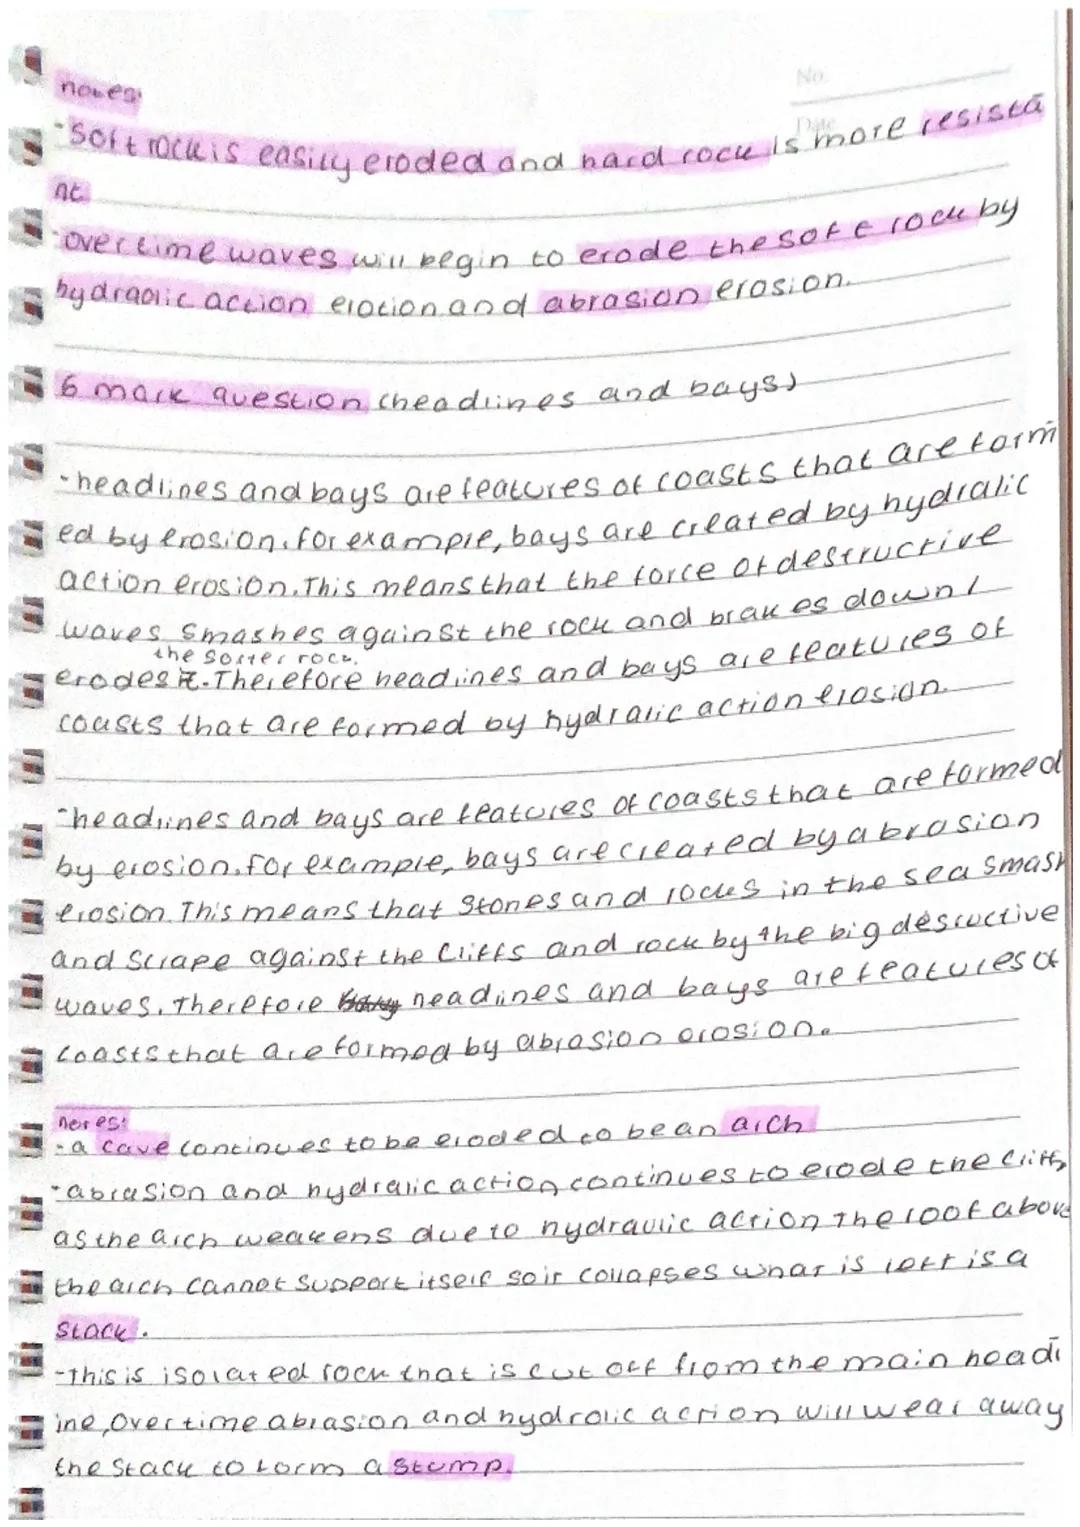 No.
Date
notes:
-Soft rock is easily eroded and hard rock is more resista
nt
-over time waves will begin to erode the soft rock by
hydraolic action erotion and abrasion erosion.
6 mark question (headlines and bays)
-headlines and bays are features of coasts that are form
ed by erosion. for example, bays are created by hydralic
action erosion. This means that the force of destructive
waves smashes against the rock and brakes down /
the softer rock.
erodes it. Therefore headlines and bays are features of
coasts that are formed by hydralic action erosion.
-headlines and bays are features of coasts that are formed
by erosion. for example, bays are created by abrasion
erosion. This means that stones and rocks in the sea smash
and scrape against the cliffs and rock by the big desructive
waves. Therefore headlines and bays are features of
coasts that are formed by abrasion erosion.
notes:
-a cave continues to be eroded to be an arch
-abrasion and hydralic action continues to erode the cliff,
as the arch weakens due to hydraulic action The roof above
the arch cannot support itself so it collapses what is left is a
stack.
-This is isolated rock that is cut off from the main headl
ine, over time abrasion and hydrolic action will wear away
the stack to form a stump.